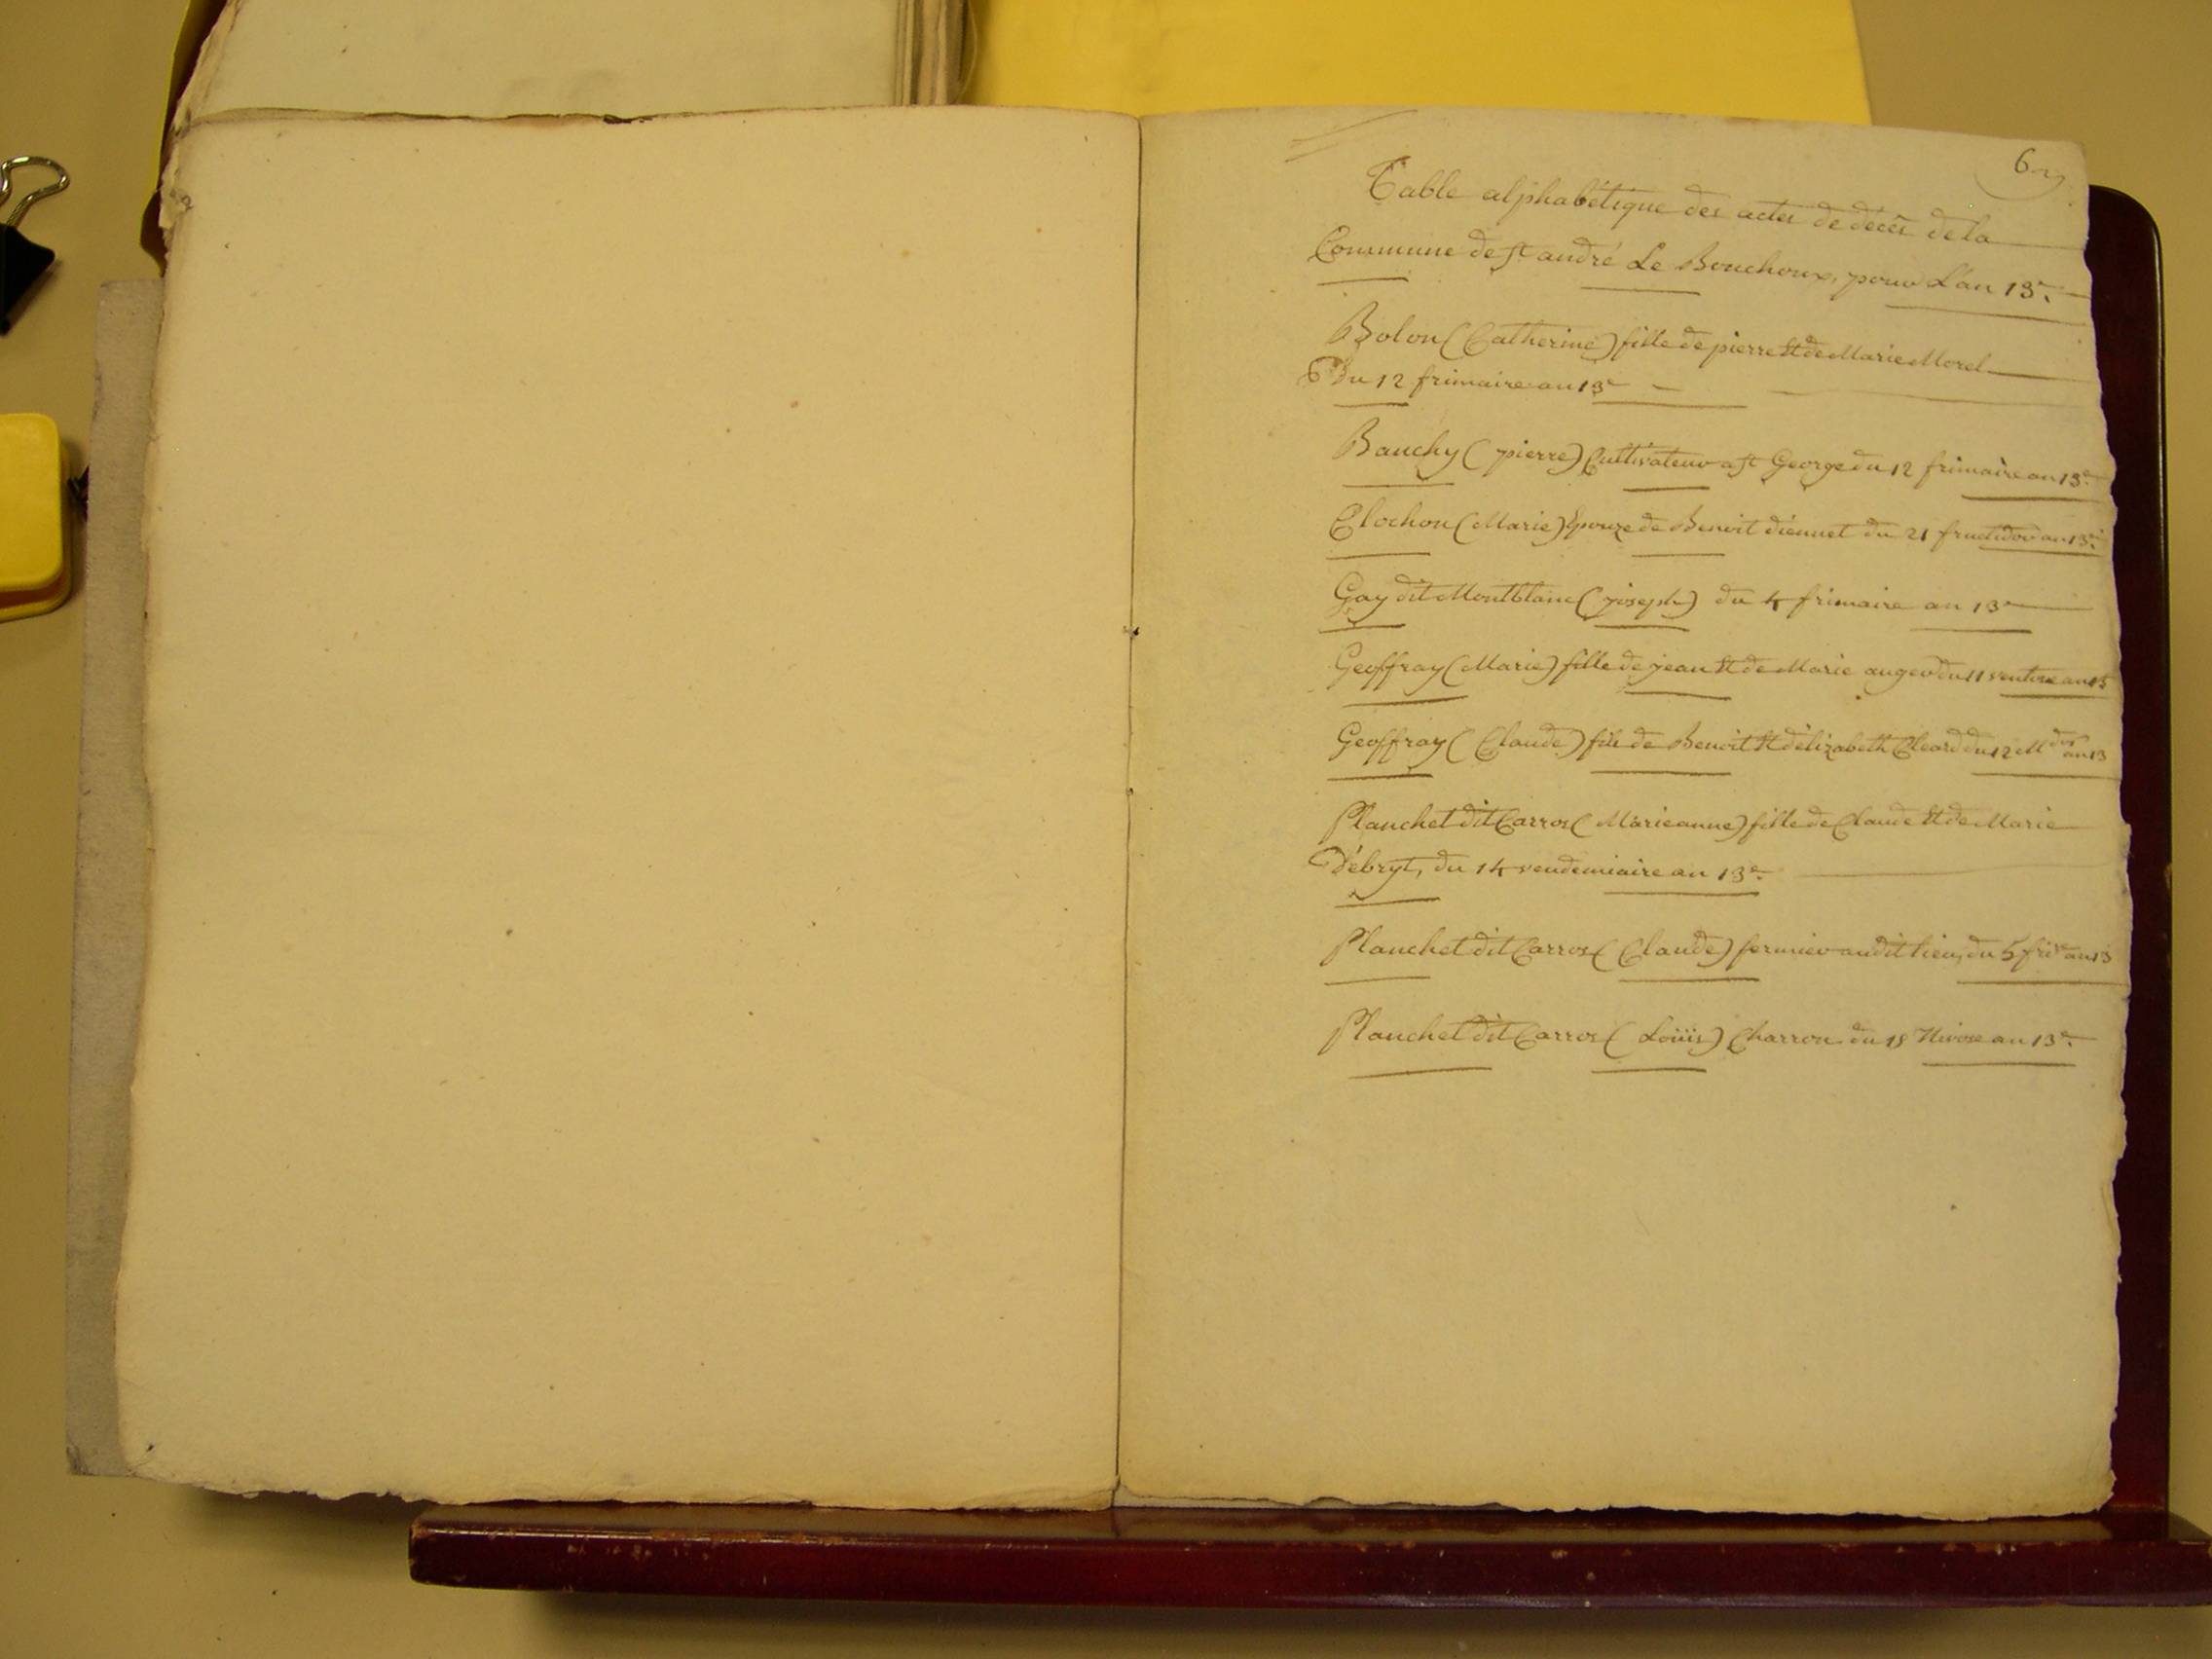 Table alphabétique des actes de décès de la
Commune de st andré Le Bouchoux, pour L'an 13e.
Bolon (Catherine) fille de pierre Et de Marie Morel
Du 12 frimaire an 13e
Bauchy (pierre) Cultivateur a st George du 12 frimaire an 13e.
Clochon (Marie) Epouze de Benoit diennet du 21 fructidor an 13e.
Gay dit Montblanc (joseph) du 4 frimaire an 13e
Geoffray (Marie) fille de jean Et de Marie auger du 11 ventose an 13
Geoffray (Claude) fils de Benoit Et d'elizabeth du 12 Mdor an 13
Planchet dit Carros (Marieanne) fille de Claude Et de Marie
Débryt, du 14 vendemiaire an 13e.
Planchet dit Carros (Claude) fermier audit lieu, du 5 frire an 13
Planchet dit Carros (Loüis) Charron du 18 Nivose an 13e.